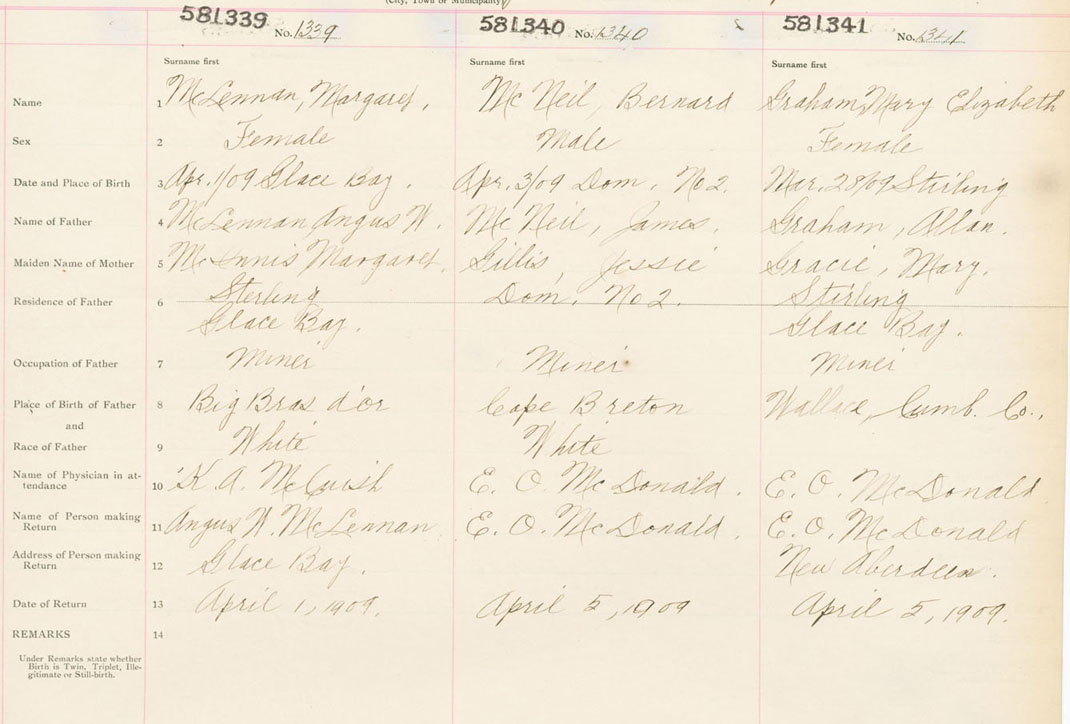 (City, Town or Municipality)
581339 No. 1339 581340 No. 1340 581341 No. 1341
Surname first Surname first Surname first
Name 1 McLennan, Margaret, McNeil, Bernard Graham, Mary Elizabeth
Sex 2 Female Male Female
Date and Place of Birth 3 Apr. 1/09 Glace Bay. Apr. 3/09 Dom. No 2. Mar. 28/09 Stirling
Name of Father 4 McLennan Angus W. McNeil, James. Graham, Allan.
Maiden Name of Mother 5 McInnis Margaret. Gillis, Jessie Gracie, Mary.
Residence of Father 6 Sterling Dom. No 2. Stirling
Glace Bay. Glace Bay.
Occupation of Father 7 Miner Miner Miner
Place of Birth of Father 8 Big Bras d'or Cape Breton Wallace, Cumb. Co.,
and
Race of Father 9 White White
Name of Physician in at-
tendance 10 K. A. McCuish E. O. McDonald. E. O. McDonald.
Name of Person making
Return 11 Angus W. McLennan E. O. McDonald. E. O. McDonald
Address of Person making
Return 12 Glace Bay. New Aberdeen.
Date of Return 13 April 1, 1909. April 5, 1909 April 5, 1909.
REMARKS 14
Under Remarks state whether
Birth is Twin, Triplet, Ille-
gitimate or Still-birth.